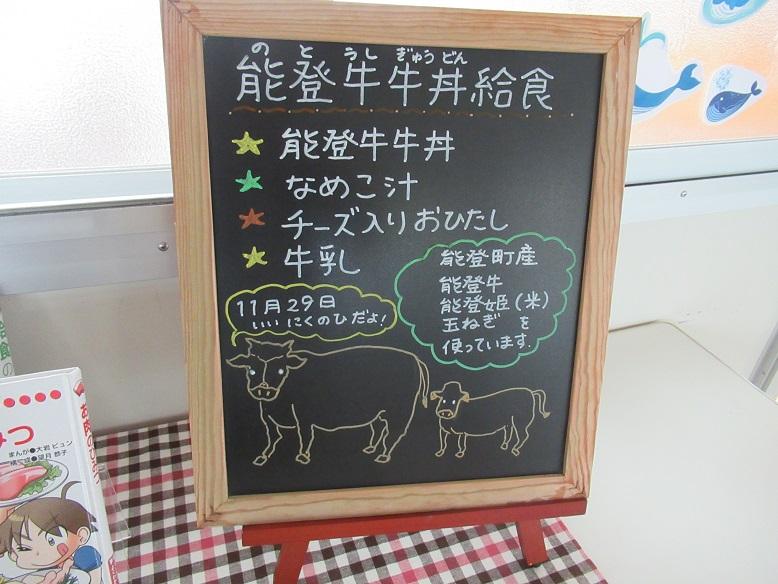 のとうしぎゅうどん
能登牛牛丼給食
能登牛牛丼
なめこ汁
チーズ入りおひたし
牛乳
11月29日
いいにくのひだよ!
能登町産
能登牛
能登姫(米)
玉ねぎを
使っています。
みつ
まんが●大岩ピュン
構成●望月恭子